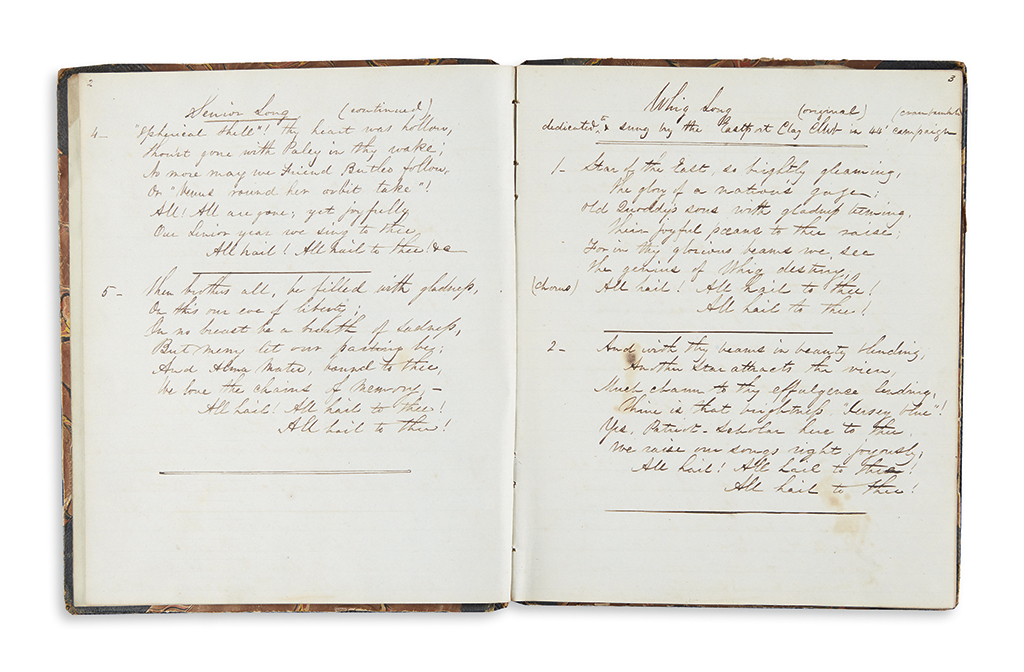 2
Senior Song (continued)
4- "Spherical Shell"! thy heart was hollow,
Thou'st gone with Paley in thy wake;
No more may we friend Butler follow,
Or "Venus round her orbit take"!
All! All are gone; yet joyfully
Our Senior year we sing to thee,
All hail! All hail to thee! &c
5- Then brothers all, be filled with gladness,
On this our eve of liberty,
In no breast be a breath of sadness,
But merry let our parting be;
And Alma Mater, bound to thee,
We love the chains of memory,-
All hail! All hail to thee!
All hail to thee!
3
Whig Song (original)
dedicated to & sung by the Eastport Clay Club in 44' campaign
1- Star of the East, so brightly gleaming,
The glory of a nations gaze;
Old Quoddy's sons with gladness teeming,
Their joyful pœans to thee raise;
For in thy glorious beams we see
The genius of Whig destiny,
(Chorus) All hail! All hail to thee!
All hail to thee!
2- And with thy beams in beauty blending,
Another Star attracts the view,
Much charm to thy effulgence lending,
Thine is that brightness "Jersey blue"!
Yes, Patriot-Scholar here to thee
We raise our songs right joyously,
All hail! All hail to thee!
All hail to thee!